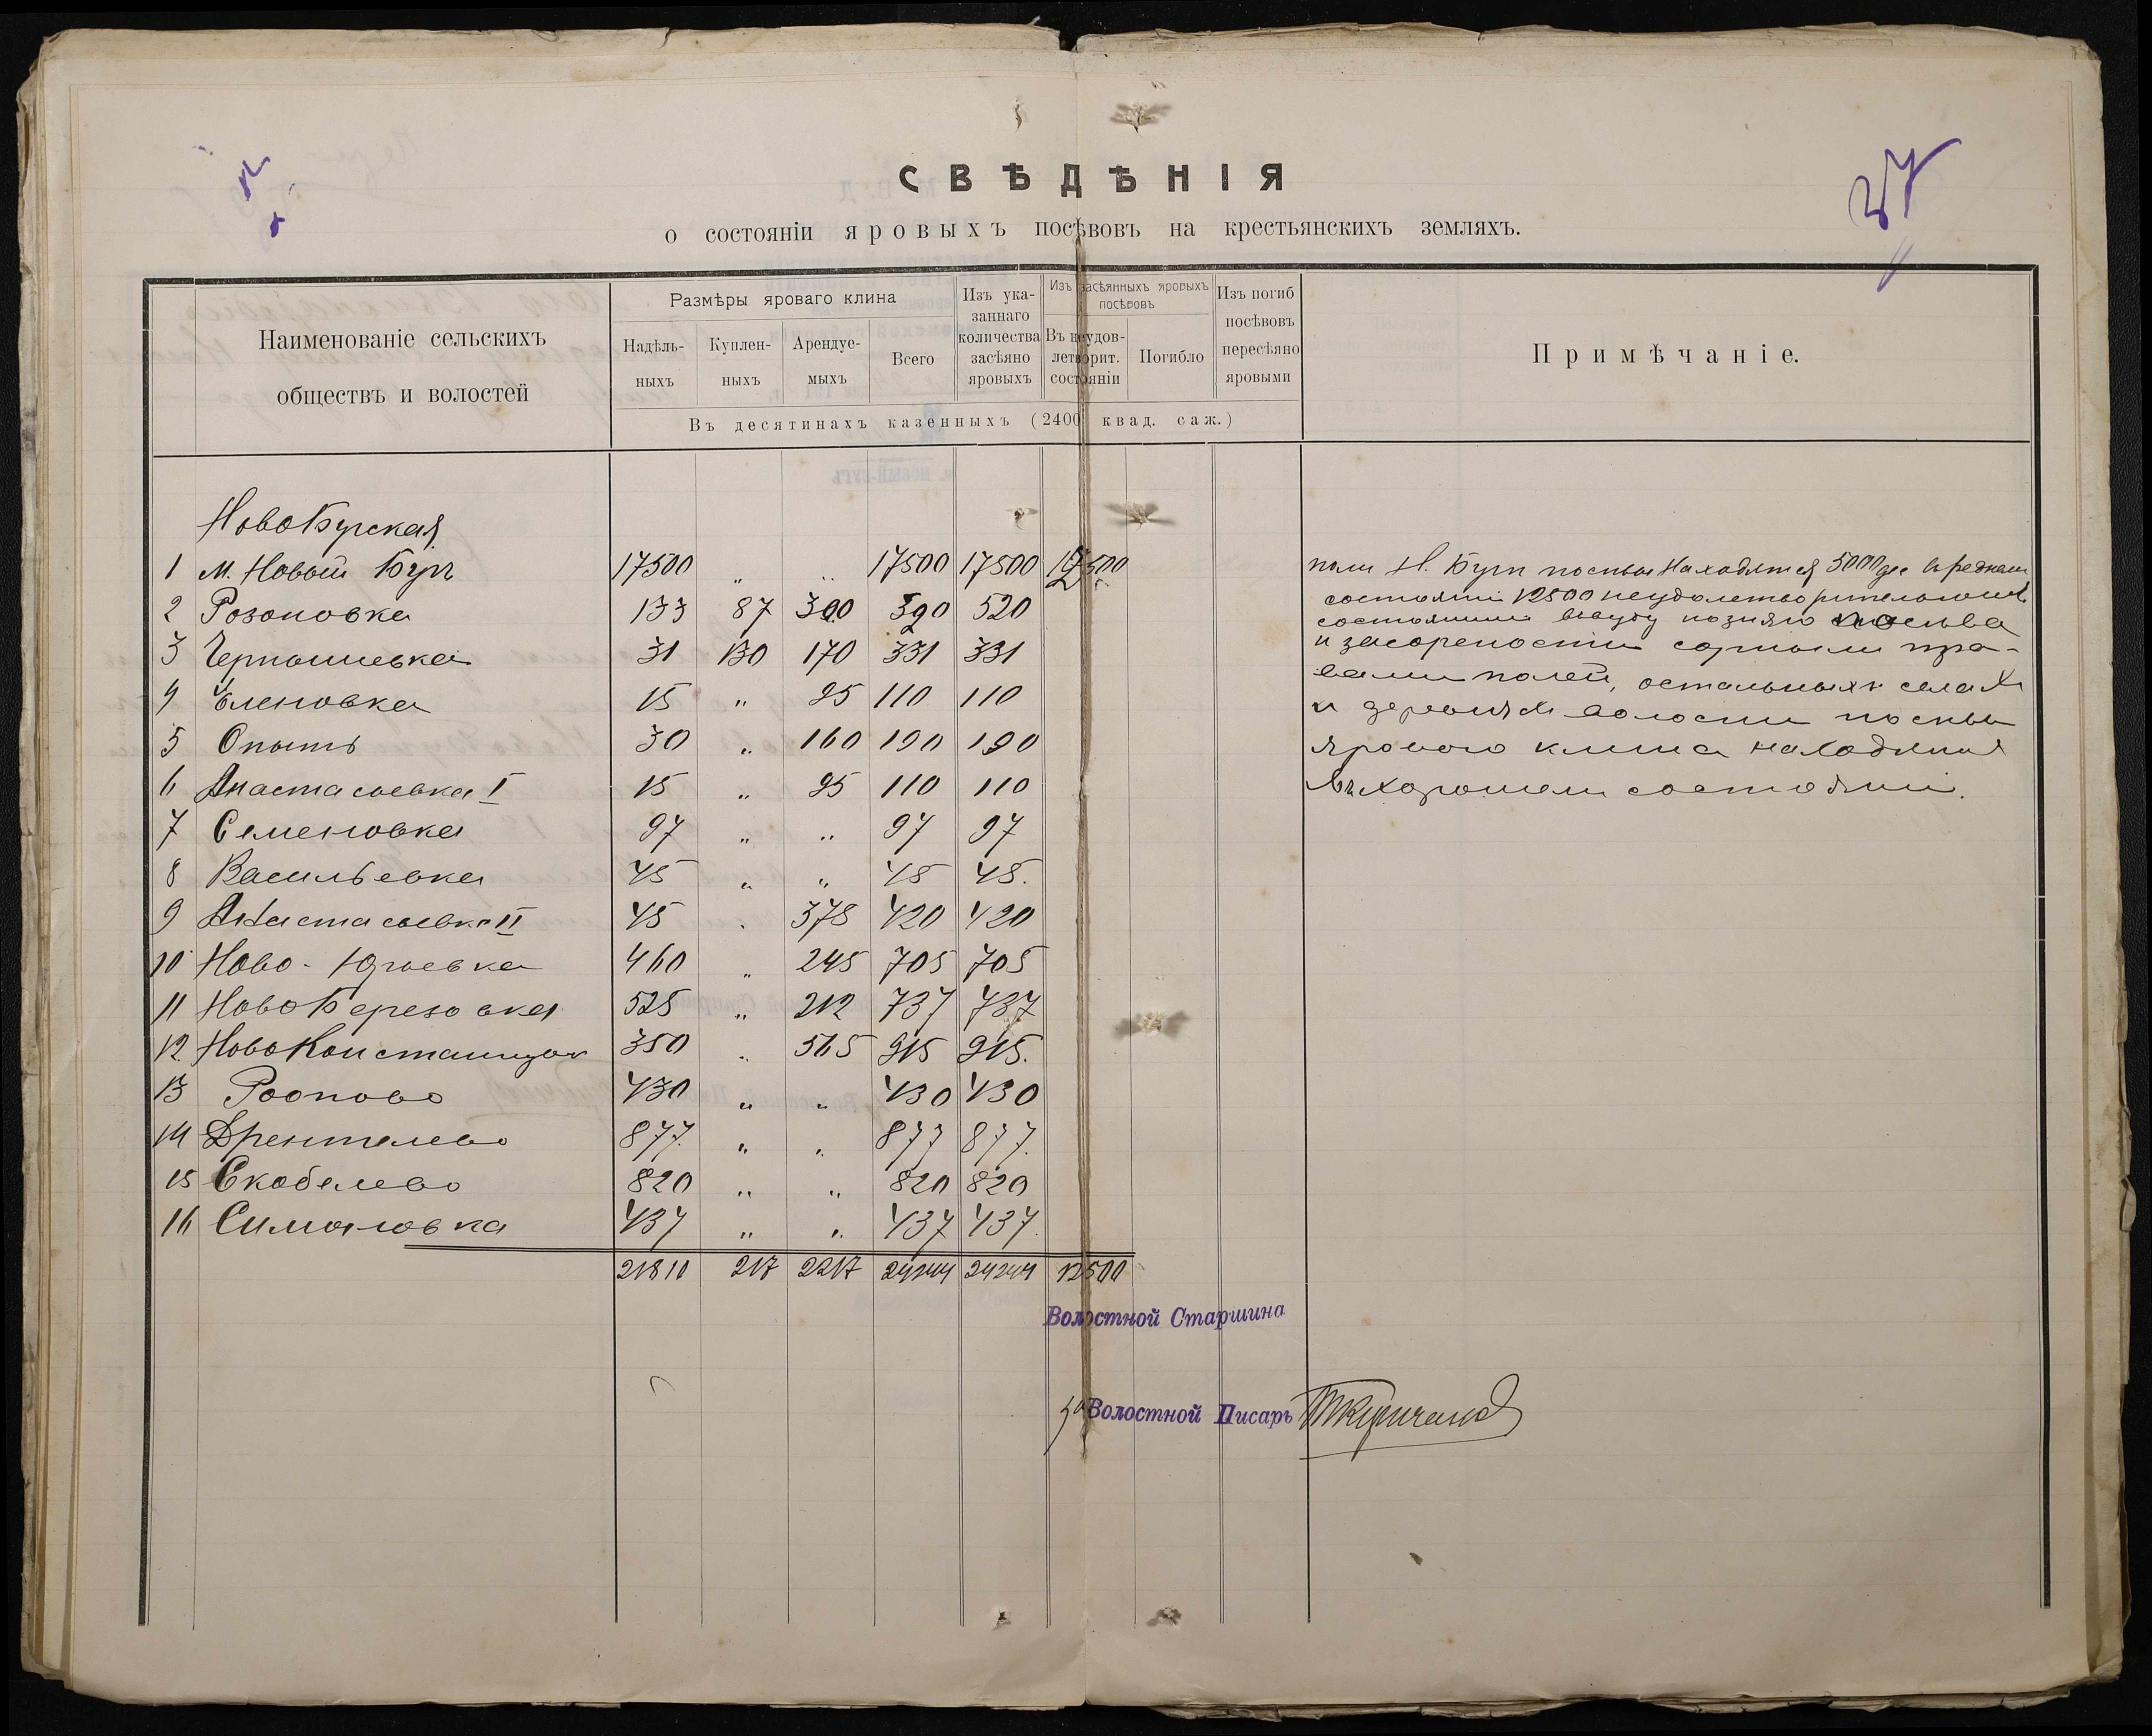 37
СВѢДѢНІЯ
о состояніи яровыхъ посѣвовъ на крестьянскихъ земляхъ.
Наименованіе сельскихъ
обществъ и волостей
Размѣры яроваго клина
Надѣль-
ныхъ
Куплен-
ныхъ
Арендуе-
мыхъ
Всего
Изъ ука-
заннаго
количества
засѣяно
яровыхъ
Изъ засѣянныхъ яровыхъ
посѣвовъ
Въ неудов-
летворит.
состояніи
Погибло
Изъ погиб
посѣвовъ
пересѣяно
яровыми
Примѣчаніе.
Въ десятинахъ казенныхъ (2400 квад. саж.)
НовоБугская
1 м. Новый Бугъ 17500 „ „ 17500 17500 12500
2 Розоновка 133 87 300 520
3 Чернышевка 31 130 170 331 331
4 Еленовка 15 „ 95 110 110
5 Опытъ 30 „ 160 190 190
6 Анастасьевка I 15 „ 95 110 110
7 Семеновка 97 „ „ 97 97
8 Васильевка 45 „ „ 45 45.
9 Анастасьевка II 45 375 420 420
10 Ново-Юрьевка 460 „ 245 705 705
11 НовоБерезовка 525 „ 212 737 737
12 НовоКонстантин 350 „ 565 915 915.
13 Роопово 430 „ „ 430 430
14 Дрентелево 877. „ „ 877 877.
15 Скобелево 820 „ „ 820 820
16 Симоновка 437 „ „ 437 437.
21810 217 2217 24244 24244 12500
поли Н. Буга посевы находятся 5000 дес въ среднем
состоянии 12500 неудовлетворительномъ
состоянии ввиду позняго посева
и засорености сорными тра-
вами полей, остальныхъ селахъ
и деревняхъ волости посевы
ярового клина находятся
въ хорошем состоянии.
Волостной Старшина
за Волостной Писарь